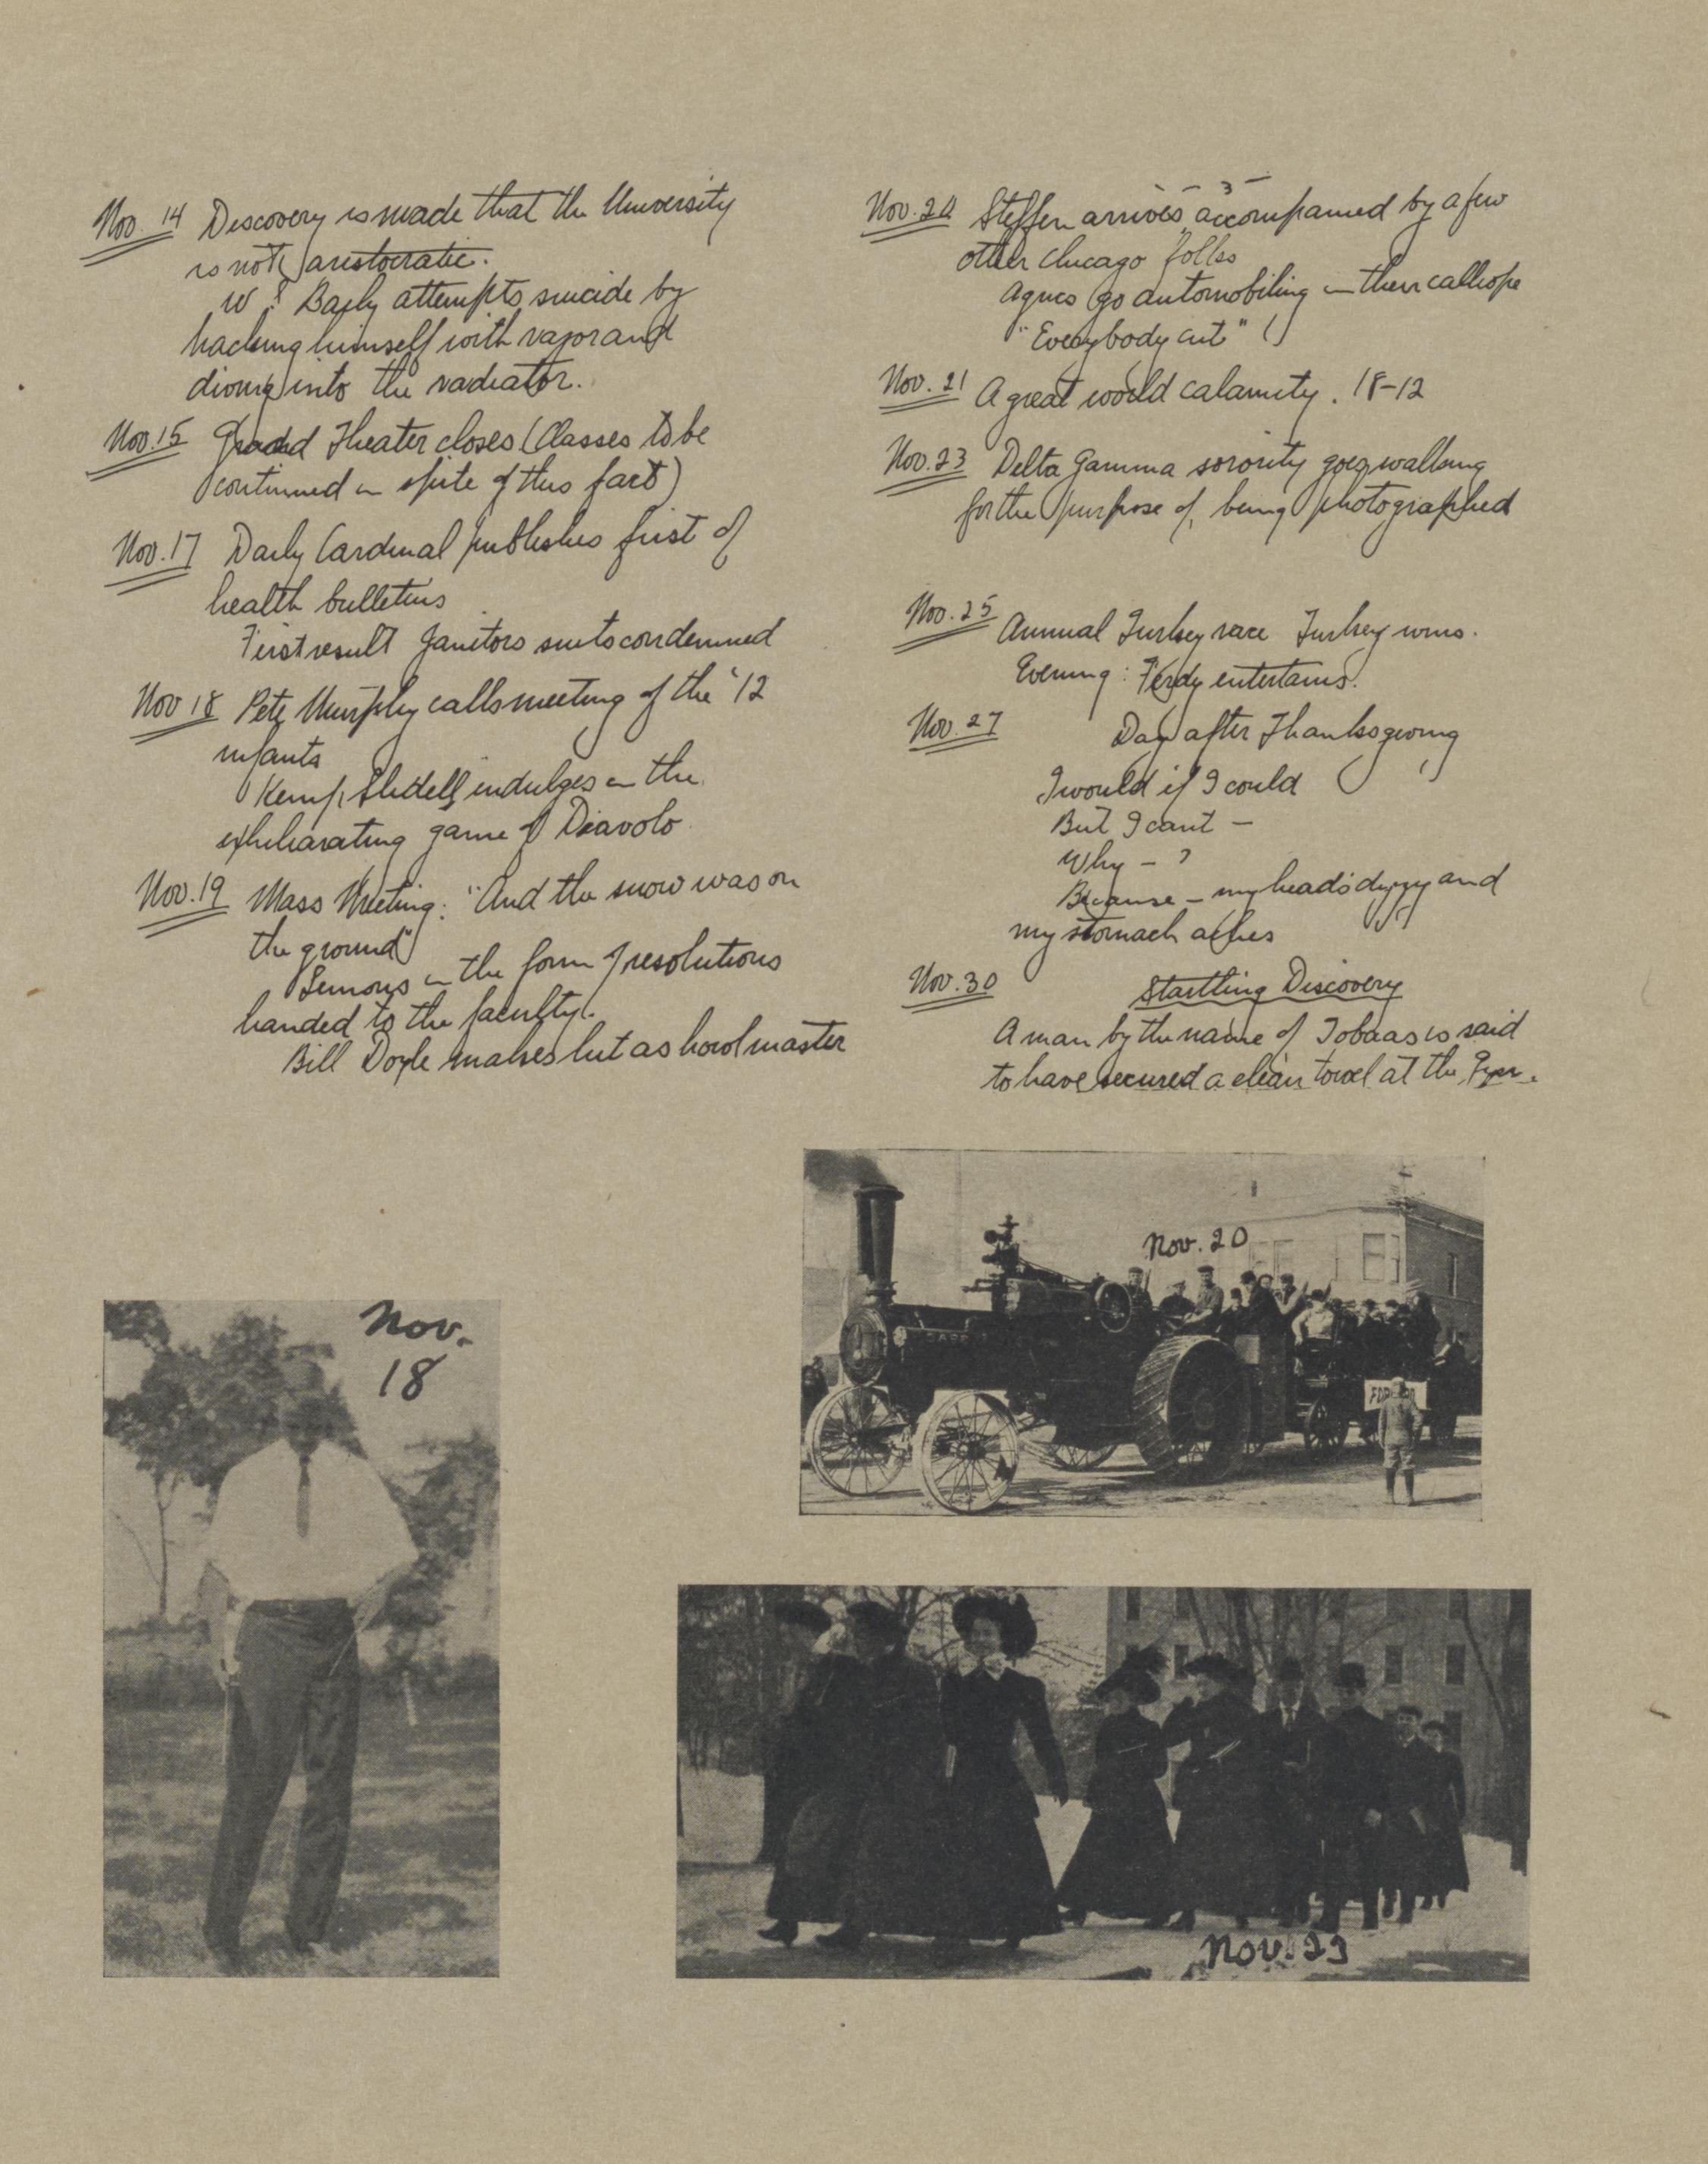 Nov. 14 Discovery is made that the University
is not aristocratic.
W. Baily attempts suicide by
hacking himself with razor and
diving into the radiator.
Nov. 15 Grand Theater closes (Classes to be
continued in spite of this fact)
Nov. 17 Daily Cardinal publishes first of
health bulletins
First result Janitors suits condemned
Nov 18 Pete Murphy calls meeting of the '12
infants
Kemp Slidell indulges in the
exhilarating game of Diavolo.
Nov. 19 Mass Meeting: "And the snow was on
the ground"
Lemons in the form of resolutions
handed to the faculty.
Bill Doyle makes hit as howlmaster
- 3 -
Nov. 20 Steffen arrives, accompanied by a few
other Chicago folks
Agrics go automobiling in their calliope
"Everybody cut" !
Nov. 21 A great world calamity. 18-12
Nov. 23 Delta Gamma sorority goes walking
for the purpose of, being photographed
Nov. 25 Annual Turkey race Turkey wins.
Evening: Ferdy entertains.
Nov. 27 Day after Thanksgiving
I would if I could
But I cant -
Why - ?
Because - my head's dizzy and
my stomach aches
Nov. 30 Startling Discovery
A man by the name of Tobaas is said
to have secured a clean towel at the Gym.
Nov. 20
CASE
Nov.
18
Nov. 23